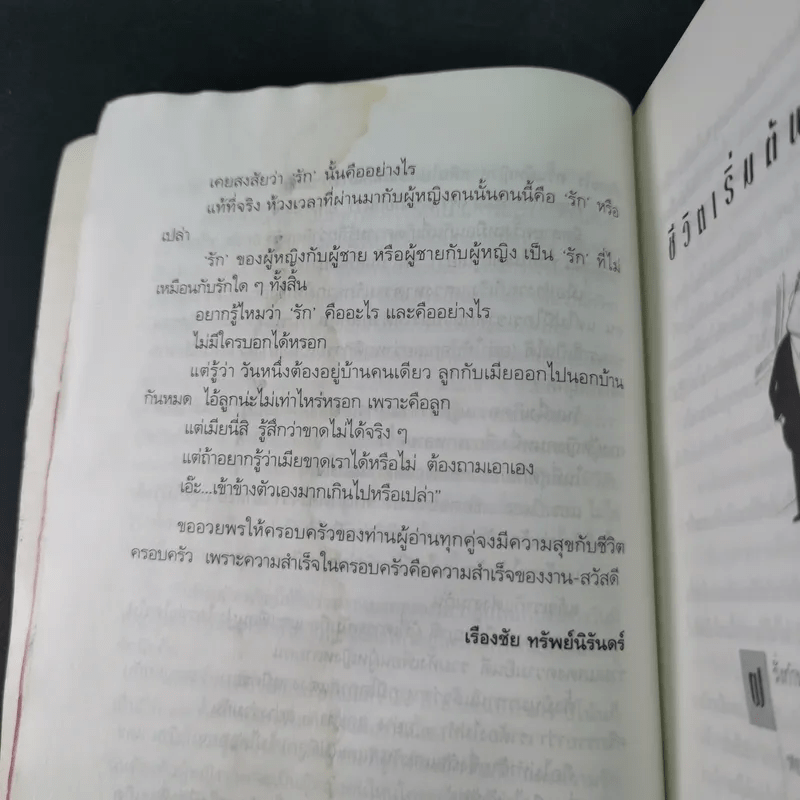 เคยสงสัยว่า ‘รัก’ นั้นคืออย่างไร
แท้ที่จริง ห้วงเวลาที่ผ่านมากับผู้หญิงคนนั้นคนนี้คือ ‘รัก’ หรือ
เปล่า
‘รัก’ ของผู้หญิงกับผู้ชาย หรือผู้ชายกับผู้หญิง เป็น ‘รัก’ ที่ไม่
เหมือนกับรักใด ๆ ทั้งสิ้น
อยากรู้ไหมว่า ‘รัก’ คืออะไร และคืออย่างไร
ไม่มีใครบอกได้หรอก
แต่รู้ว่า วันหนึ่งต้องอยู่บ้านคนเดียว ลูกกับเมียออกไปนอกบ้าน
กันหมด ไอ้ลูกน่ะไม่เท่าไหร่หรอก เพราะคือลูก
แต่เมียนี่สิ รู้สึกว่าขาดไม่ได้จริง ๆ
แต่ถ้าอยากรู้ว่าเมียขาดเราได้หรือไม่ ต้องถามเอาเอง
เอ๊ะ...เข้าข้างตัวเองมากเกินไปหรือเปล่า”
ขออวยพรให้ครอบครัวของท่านผู้อ่านทุกคู่จงมีความสุขกับชีวิต
ครอบครัว เพราะความสำเร็จในครอบครัวคือความสำเร็จของงาน-สวัสดี
เรืองชัย ทรัพย์นิรันดร์
ชีวิตเริ่มต้น
๗